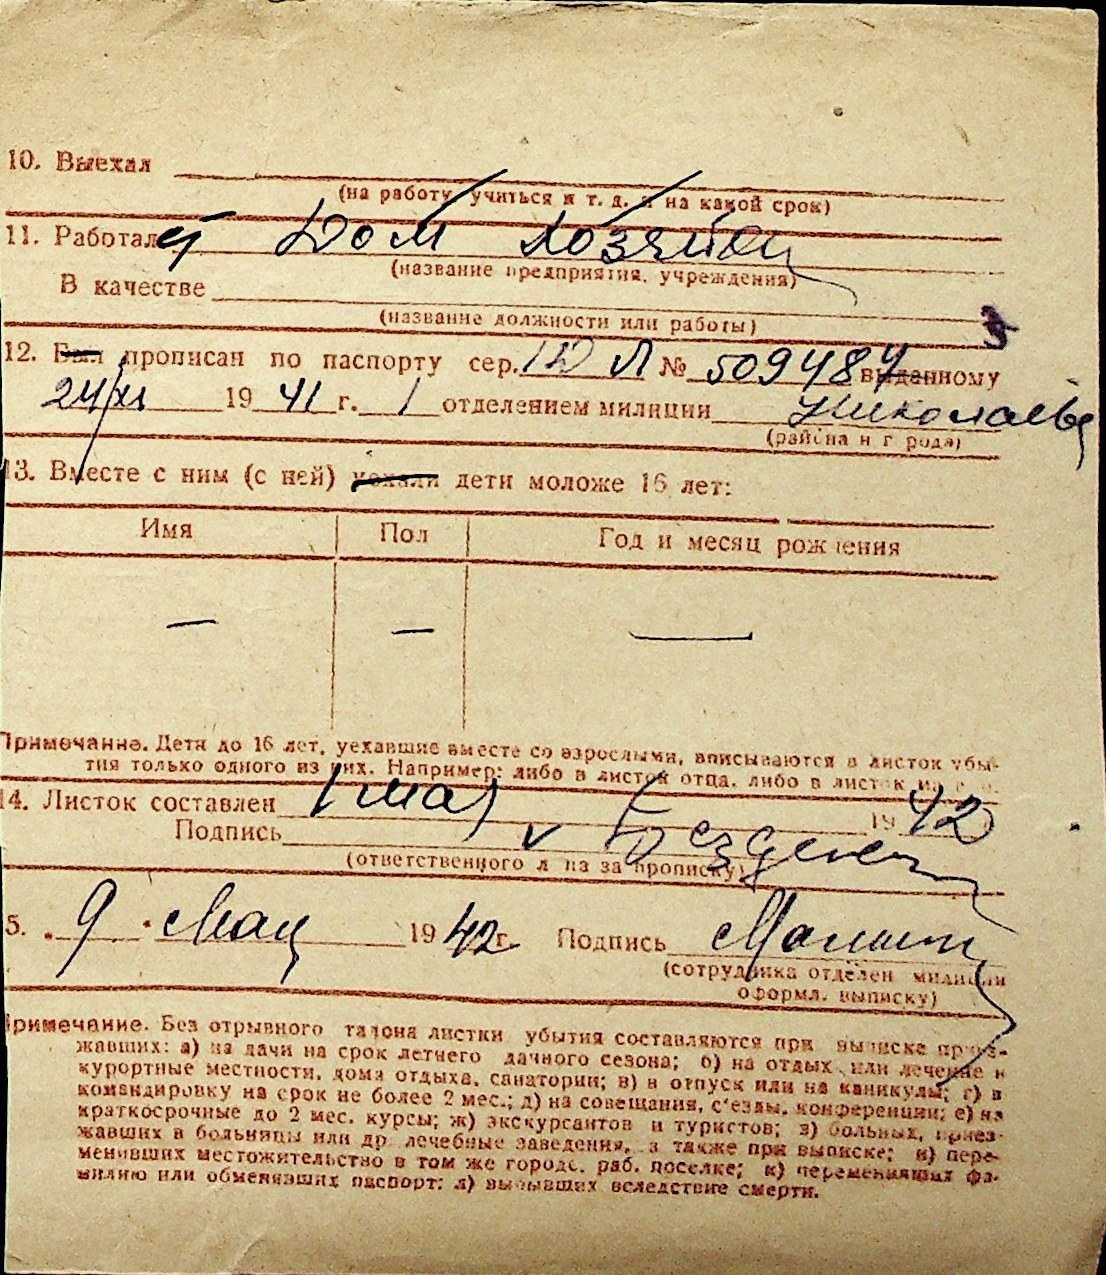 10. Выехал
(на работу, учиться и т. д. и на какой срок)
11. Работал Дом хозяйка
(название предприятия, учреждения)
В качестве
(название должности или работы)
12. Был прописан по паспорту сер. № 509487 выданному
24/XI 1941 г. 1 отделением милиции Николаев
(района и города)
13. Вместе с ним (с ней) уехали дети моложе 16 лет:
Имя Пол Год и месяц рождения
— — —
Примечание. Дети до 16 лет, уехавшие вместе со взрослыми, вписываются в листок убы-
тия только одного из них. Например: либо в листок отца, либо в листок
14. Листок составлен 1 мая 1942
Подпись
(ответственного лица за прописку)
15. 9 мая 1942 г. Подпись
(сотрудника отделен. милиции
оформл. выписку)
Примечание. Без отрывного талона листки убытия составляются при выписке приез-
жавших: а) на дачи на срок летнего дачного сезона; б) на отдых или лечение в
курортные местности, дома отдыха, санатории; в) в отпуск или на каникулы; г) в
командировку на срок не более 2 мес.; д) на совещания, с'езды, конференции; е) на
краткосрочные до 2 мес. курсы; ж) экскурсантов и туристов; з) больных, приез-
жавших в больницы или др. лечебные заведения, а также при выписке; и) пере-
менивших местожительство в том же городе, раб. поселке; к) переменивших фа-
милию или обменявших паспорт; л) выбывших вследствие смерти.